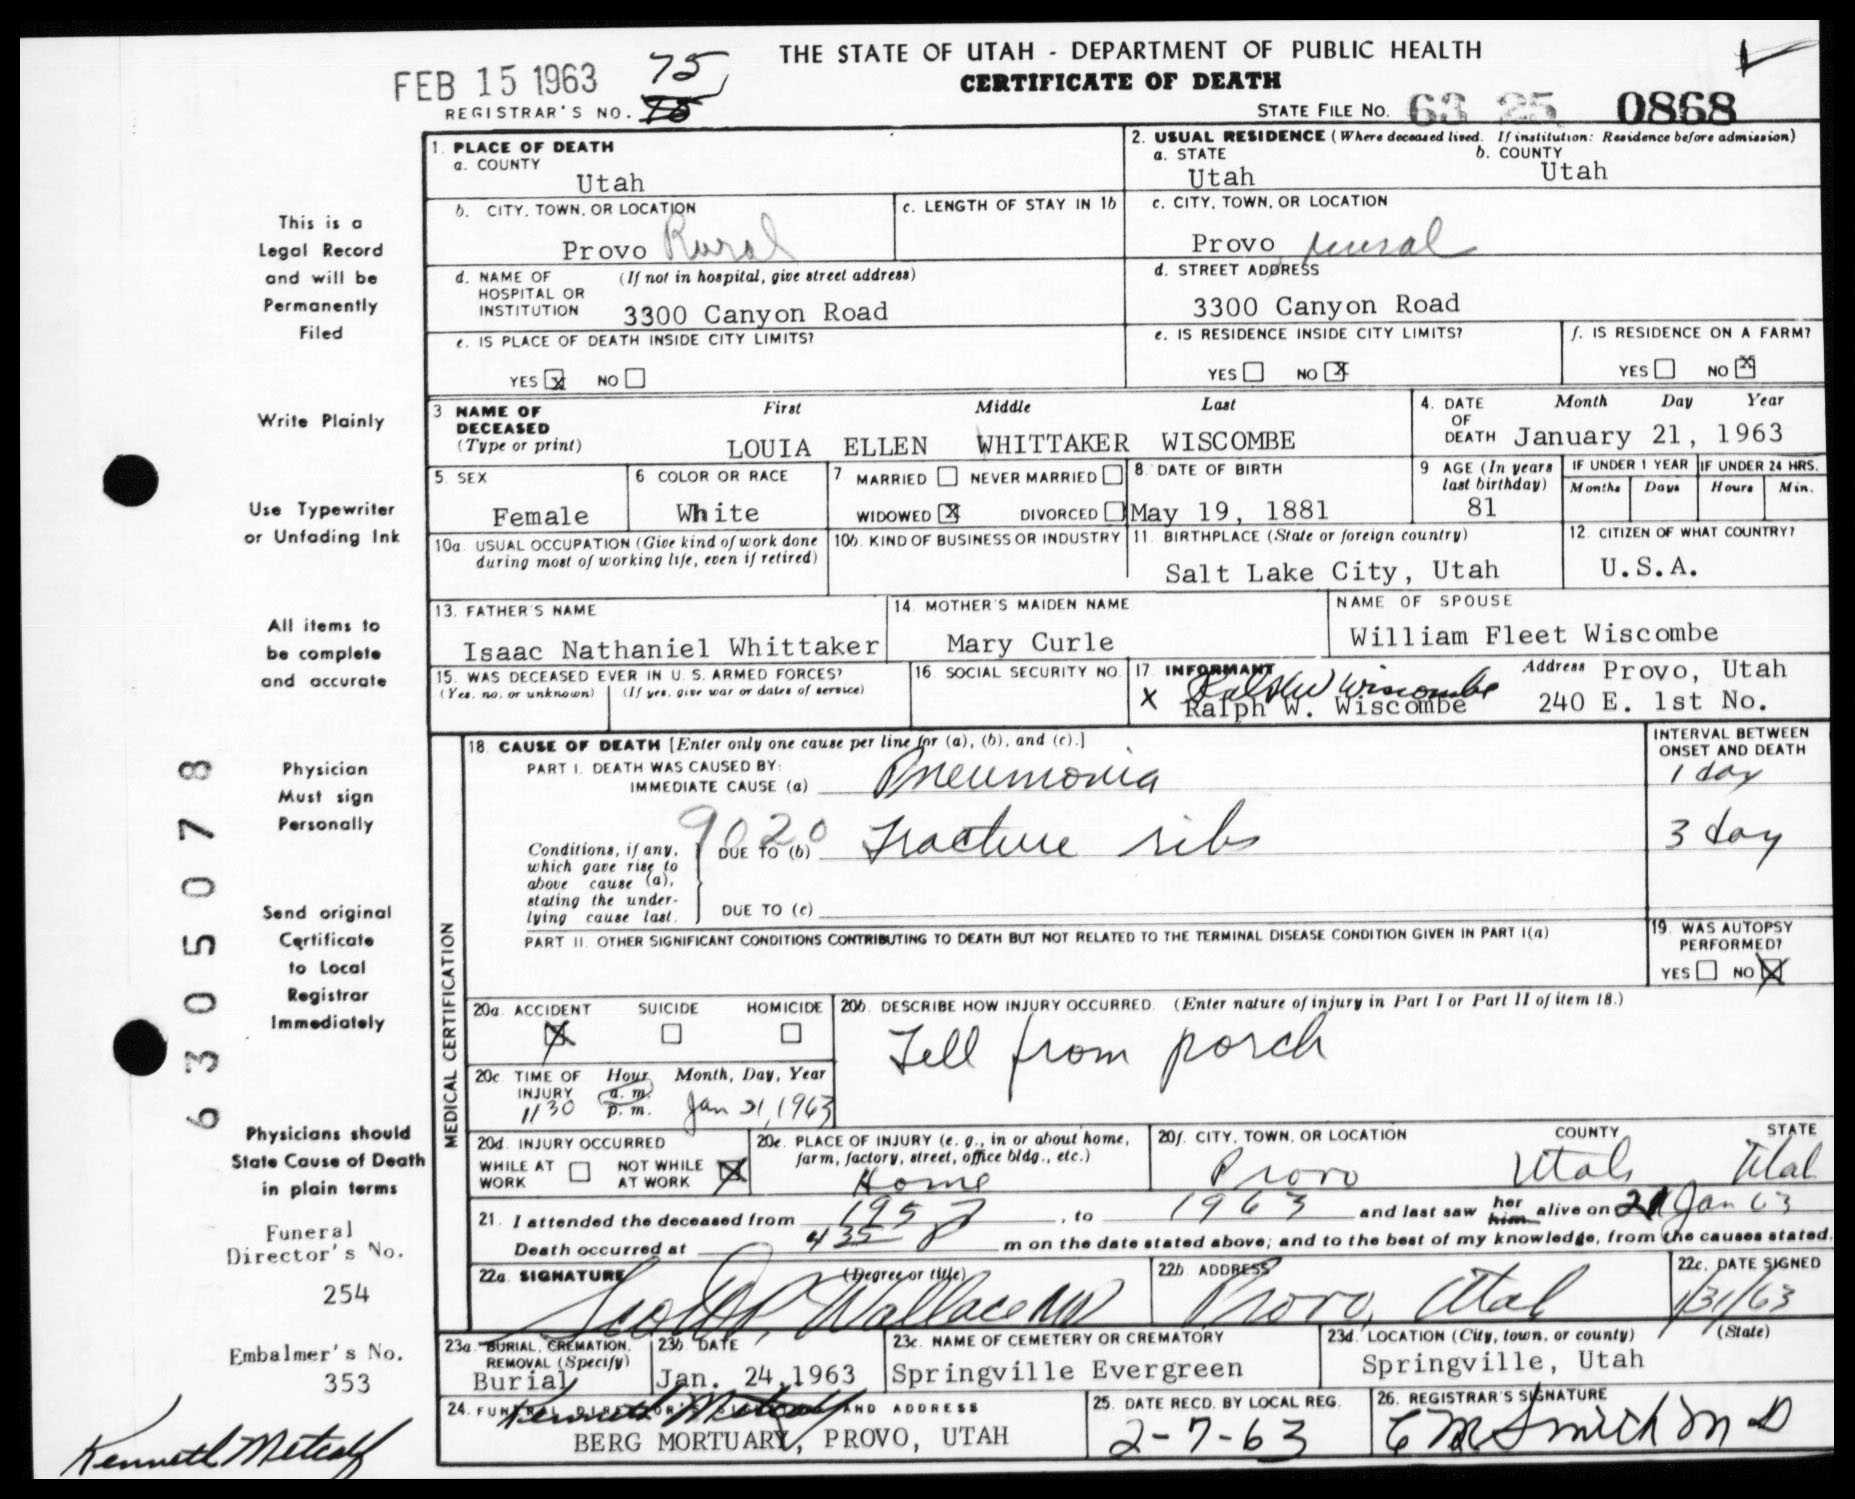 THE STATE OF UTAH - DEPARTMENT OF PUBLIC HEALTH
CERTIFICATE OF DEATH
FEB 15 1963
75
REGISTRAR'S NO. 75
STATE FILE NO. 63 25 0868
This is a
Legal Record
and will be
Permanently
Filed
Write Plainly
Use Typewriter
or Unfading Ink
All items to
be complete
and accurate
Physician
Must sign
Personally
Send original
Certificate
to Local
Registrar
Immediately
Physicians should
State Cause of Death
in plain terms
Funeral
Director's No.
254
Embalmer's No.
353
Kenneth Metcalf
6305078
1. PLACE OF DEATH
a. COUNTY
Utah
2. USUAL RESIDENCE (Where deceased lived. If institution: Residence before admission)
a. STATE
Utah
b. COUNTY
Utah
b. CITY, TOWN, OR LOCATION
Provo Rural
c. LENGTH OF STAY IN 1b
c. CITY, TOWN, OR LOCATION
Provo rural
d. NAME OF (If not in hospital, give street address)
HOSPITAL OR
INSTITUTION 3300 Canyon Road
d. STREET ADDRESS
3300 Canyon Road
e. IS PLACE OF DEATH INSIDE CITY LIMITS?
YES x NO
e. IS RESIDENCE INSIDE CITY LIMITS?
YES NO x
f. IS RESIDENCE ON A FARM?
YES NO x
3 NAME OF First Middle Last
DECEASED
(Type or print) LOUIA ELLEN WHITTAKER WISCOMBE
4. DATE Month Day Year
OF
DEATH January 21, 1963
5. SEX
Female
6. COLOR OR RACE
White
7 MARRIED NEVER MARRIED
WIDOWED x DIVORCED
8. DATE OF BIRTH
May 19, 1881
9 AGE (In years
last birthday)
81
IF UNDER 1 YEAR
Months Days
IF UNDER 24 HRS.
Hours Min.
10a. USUAL OCCUPATION (Give kind of work done
during most of working life, even if retired)
10b. KIND OF BUSINESS OR INDUSTRY
11. BIRTHPLACE (State or foreign country)
Salt Lake City, Utah
12. CITIZEN OF WHAT COUNTRY?
U.S.A.
13. FATHER'S NAME
Isaac Nathaniel Whittaker
14. MOTHER'S MAIDEN NAME
Mary Curle
NAME OF SPOUSE
William Fleet Wiscombe
15. WAS DECEASED EVER IN U. S. ARMED FORCES?
(Yes, no, or unknown) (If yes, give war or dates of service)
16. SOCIAL SECURITY NO.
17. INFORMANT
Ralph W Wiscombe
X Ralph W. Wiscombe
Address Provo, Utah
240 E. 1st No.
MEDICAL CERTIFICATION
18. CAUSE OF DEATH [Enter only one cause per line for (a), (b), and (c).]
PART I. DEATH WAS CAUSED BY:
IMMEDIATE CAUSE (a) Pneumonia
INTERVAL BETWEEN
ONSET AND DEATH
1 day
9020
Conditions, if any,
which gave rise to
above cause (a),
stating the under-
lying cause last.
DUE TO (b) Fracture ribs
3 day
DUE TO (c)
PART II. OTHER SIGNIFICANT CONDITIONS CONTRIBUTING TO DEATH BUT NOT RELATED TO THE TERMINAL DISEASE CONDITION GIVEN IN PART I(a)
19. WAS AUTOPSY
PERFORMED?
YES NO X
20a. ACCIDENT SUICIDE HOMICIDE
X
20b. DESCRIBE HOW INJURY OCCURRED. (Enter nature of injury in Part I or Part II of item 18.)
Fell from porch
20c. TIME OF Hour Month, Day, Year
INJURY a. m.
1130 p. m. Jan 21, 1963
20d. INJURY OCCURRED
WHILE AT WORK NOT WHILE AT WORK X
20e. PLACE OF INJURY (e. g., in or about home,
farm, factory, street, office bldg., etc.)
Home
20f. CITY, TOWN, OR LOCATION COUNTY STATE
Provo Utah Utah
21. I attended the deceased from 1957, to 1963 and last saw her him alive on 21 Jan 63
Death occurred at 435 m on the date stated above; and to the best of my knowledge, from the causes stated.
22a. SIGNATURE (Degree or title)
Scott P. Wallace MD
22b. ADDRESS
Provo, Utah
22c. DATE SIGNED
1/31/63
23a. BURIAL, CREMATION,
REMOVAL (Specify)
Burial
23b. DATE
Jan. 24, 1963
23c. NAME OF CEMETERY OR CREMATORY
Springville Evergreen
23d. LOCATION (City, town, or county) (State)
Springville, Utah
24. FUNERAL DIRECTOR'S SIGNATURE AND ADDRESS
Kenneth Metcalf
BERG MORTUARY, PROVO, UTAH
25. DATE RECD. BY LOCAL REG.
2-7-63
26. REGISTRAR'S SIGNATURE
C M Smith M D